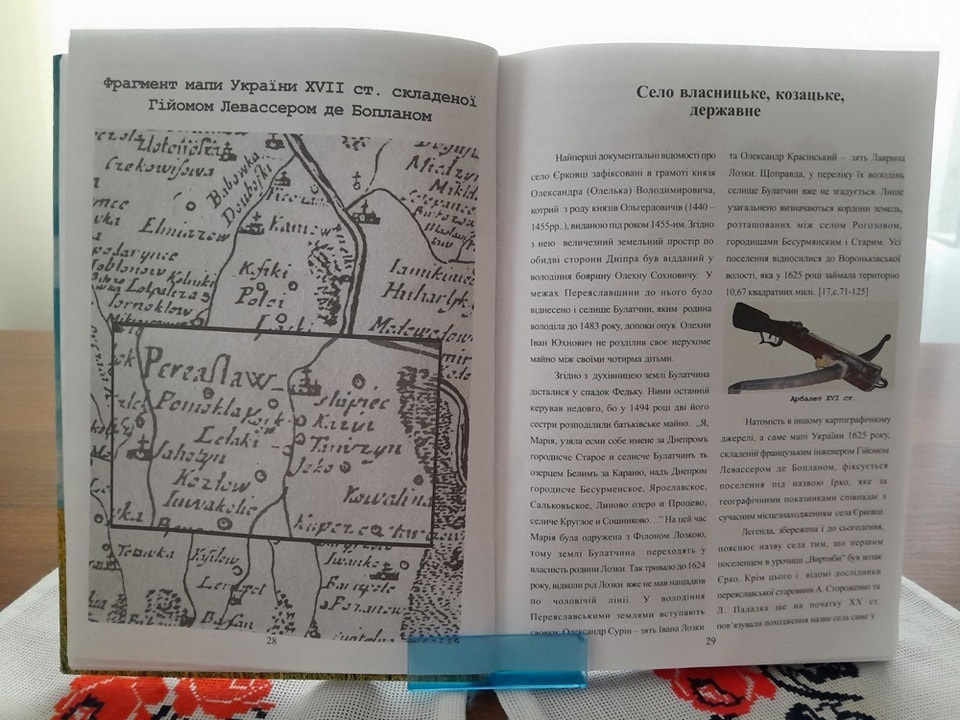 Фрагмент мапи України XVII ст. складеної
Гійомом Левассером де Бопланом
Czekowisowa
Babowka
Doubojki
Elmiazow
Kaniow
Kſiki
Potoi
Pereaſlaw
Lelaki
Kozlow
Kowalina
28
Село власницьке, козацьке,
державне
Найперші документальні відомості про
село Єрковці зафіксовані в грамоті князя
Олександра (Олелька) Володимировича,
котрий з роду князів Ольгердовичів (1440 –
1455рр..), виданою під роком 1455-им. Згідно
з нею величезний земельний простір по
обидві сторони Дніпра був відданий у
володіння боярину Олехну Сохновичу. У
межах Переяславщини до нього було
віднесено і селище Булатчин, яким родина
володіла до 1483 року, допоки онук Олехни
Іван Юхнович не розділив своє нерухоме
майно між своїми чотирма дітьми.
Згідно з духівницею землі Булатчина
дісталися у спадок Федьку. Ними останній
керував недовго, бо у 1494 році дві його
сестри розподілили батьківське майно. „Я,
Марія, узяла есми собе имене за Днепромъ
городисче Старое и селисче Булатчинъ зъ
озерцем Белимъ за Караню, надъ Днепром
городисче Бесурменское, Ярославское,
Сальковъское, Липово озеро и Процево,
селиче Круглое и Сошниково…" На цей час
Марія була одружена з Філоном Лозкою,
тому землі Булатчина переходять у
власність родини Лозки. Так тривало до 1624
року, відколи рід Лозки вже не мав нащадків
по чоловічій лінії. У володіння
Переяславськими землями вступають
свояки: Олександр Сурін – зять Івана Лозки
та Олександр Красінський – зять Лаврина
Лозки. Щоправда, у переліку їх володінь
селище Булатчин вже не згадується. Лише
узагальнено визначаються кордони земель,
розташованих між селом Рогозовом,
городищами Бесурмянським і Старим. Усі
поселення відносилися до Вороньківської
волості, яка у 1625 році займала територію
10,67 квадратних милі. [17,с.71-125]
Арбалет XVI ст.
Натомість в іншому картографічному
джерелі, а саме мапі України 1625 року,
складеній французьким інженером Гійомом
Левассером де Бопланом, фіксується
поселення під назвою Ірко, яке за
географічними показниками співпадає з
сучасним місцезнаходженням села Єрковці.
Легенда, збережена і до сьогодення,
пояснює назву села тим, що першим
поселенцем в урочищі „Виртиби" був козак
Єрко. Крім цього і відомі дослідники
переяславської старовини А. Стороженко та
Л. Падалка ще на початку XX ст.
пов'язували походження назви села саме з
29